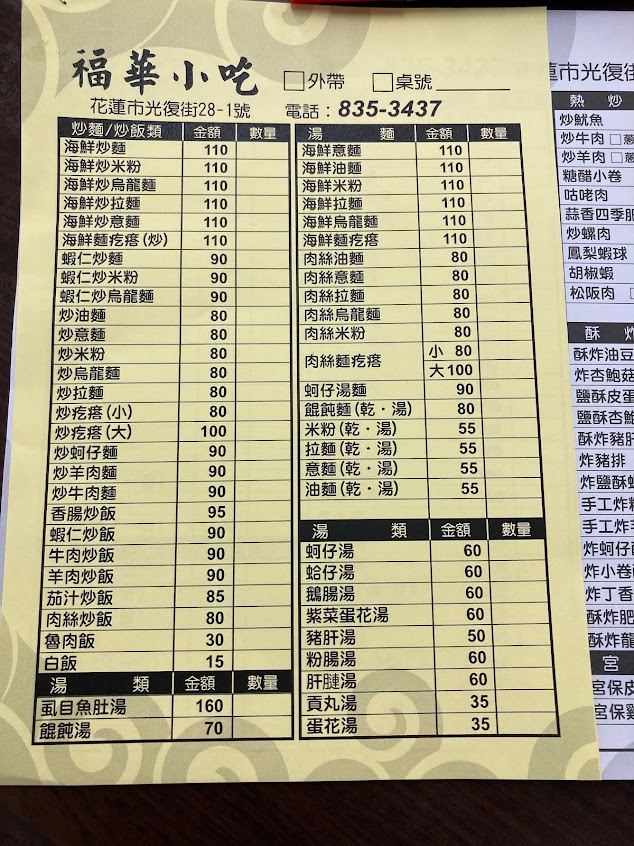 福華小吃 □外帶 □桌號
花蓮市光復街28-1號 電話：835-3437
炒麵/炒飯類 金額 數量
海鮮炒麵 110
海鮮炒米粉 110
海鮮炒烏龍麵 110
海鮮炒拉麵 110
海鮮炒意麵 110
海鮮麵疙瘩(炒) 110
蝦仁炒麵 90
蝦仁炒米粉 90
蝦仁炒烏龍麵 90
炒油麵 80
炒意麵 80
炒米粉 80
炒烏龍麵 80
炒拉麵 80
炒疙瘩(小) 80
炒疙瘩(大) 100
炒蚵仔麵 90
炒羊肉麵 90
炒牛肉麵 90
香腸炒飯 95
蝦仁炒飯 90
牛肉炒飯 90
羊肉炒飯 90
茄汁炒飯 85
肉絲炒飯 80
魯肉飯 30
白飯 15
湯類 金額 數量
虱目魚肚湯 160
餛飩湯 70
湯麵 金額 數量
海鮮意麵 110
海鮮油麵 110
海鮮米粉 110
海鮮拉麵 110
海鮮烏龍麵 110
海鮮麵疙瘩 110
肉絲油麵 80
肉絲意麵 80
肉絲拉麵 80
肉絲烏龍麵 80
肉絲米粉 80
肉絲麵疙瘩 小 80
大 100
蚵仔湯麵 90
餛飩麵(乾・湯) 80
米粉(乾・湯) 55
拉麵(乾・湯) 55
意麵(乾・湯) 55
油麵(乾・湯) 55
湯類 金額 數量
蚵仔湯 60
蛤仔湯 60
鵝腸湯 60
紫菜蛋花湯 60
豬肝湯 50
粉腸湯 60
肝腱湯 60
貢丸湯 35
蛋花湯 35
蓮市光復街
熱炒
炒魷魚
炒牛肉 □蔥
炒羊肉 □蔥
糖醋小卷
咕咾肉
蒜香四季
炒螺肉
鳳梨蝦球
胡椒蝦
松阪肉
酥炸
酥炸油豆
炸杏鮑菇
鹽酥皮蛋
鹽酥杏鮑
酥炸豬肝
炸豬排
炸鹽酥
手工炸
手工炸
炸蚵仔
炸小卷
炸丁香
酥炸肥
酥炸龍
宮
宮保皮
宮保雞